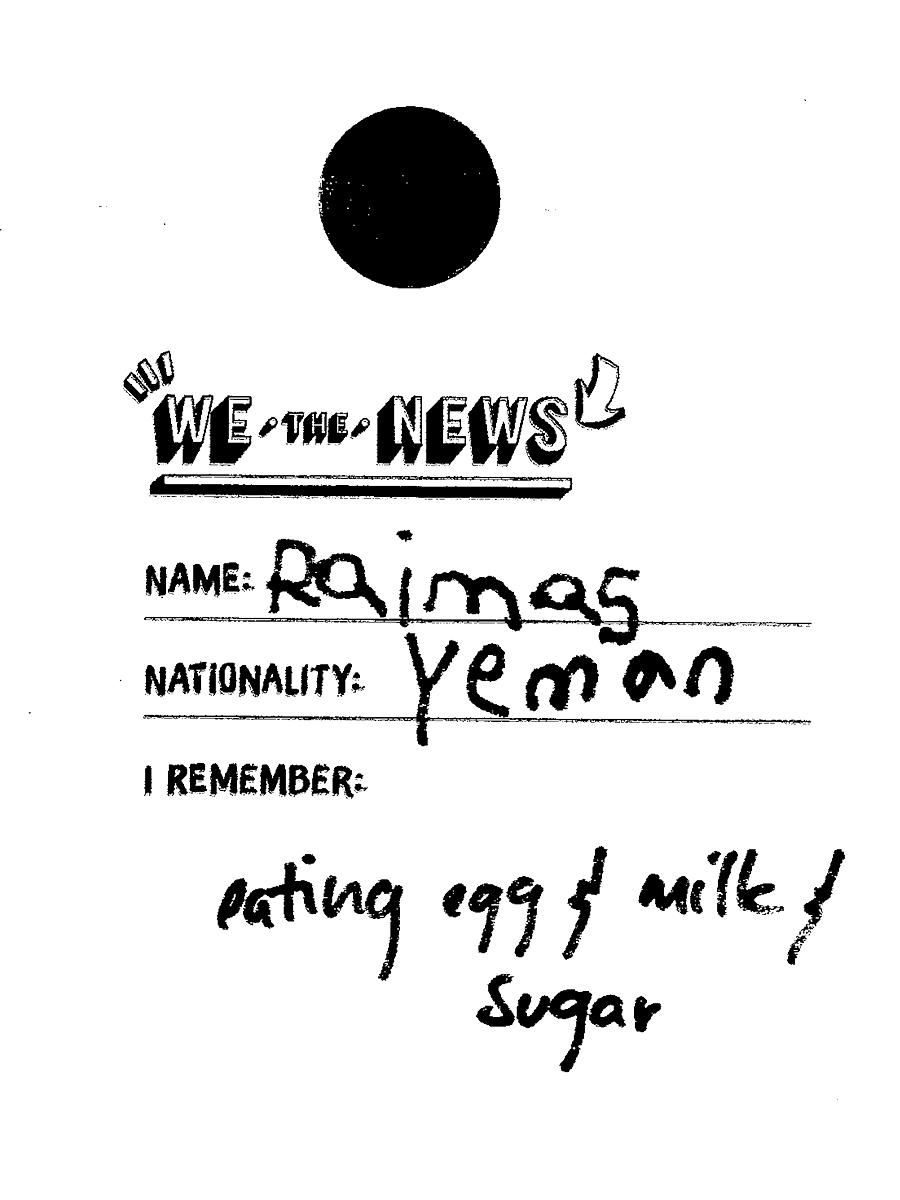 WE THE NEWS
NAME: Raimas
NATIONALITY: Yeman
I REMEMBER:
eating egg & milk &
Sugar